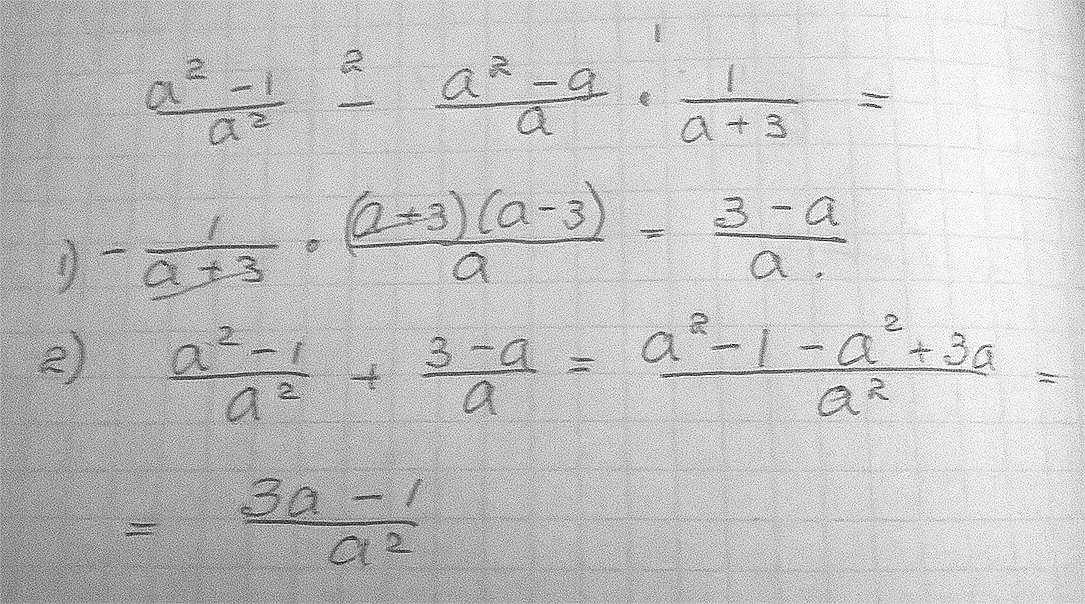 \frac{a^2-1}{a^2} \overset{2}{-} \frac{a^2-9}{a} \overset{1}{\cdot} \frac{1}{a+3} =
1) -\frac{1}{a+3} \cdot \frac{(a+3)(a-3)}{a} = \frac{3-a}{a}.
2) \frac{a^2-1}{a^2} + \frac{3-a}{a} = \frac{a^2-1-a^2+3a}{a^2} =
= \frac{3a-1}{a^2}